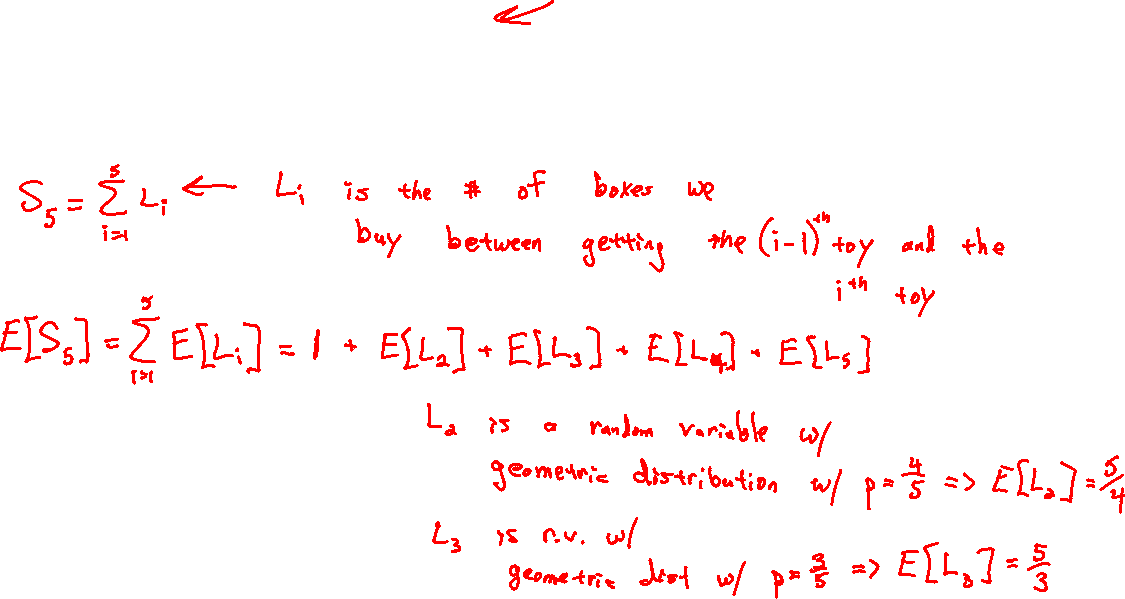 S₅ = ∑_{i=1}^{5} L_i ← L_i is the # of boxes we
buy between getting the (i-1)^th toy and the
i^th toy
E[S₅] = ∑_{i=1}^{5} E[L_i] = 1 + E[L₂] + E[L₃] + E[L₄] + E[L₅]
L₂ is a random variable w/
geometric distribution w/ p = 4/5 => E[L₂] = 5/4
L₃ is r.v. w/
geometric dist w/ p = 3/5 => E[L₃] = 5/3